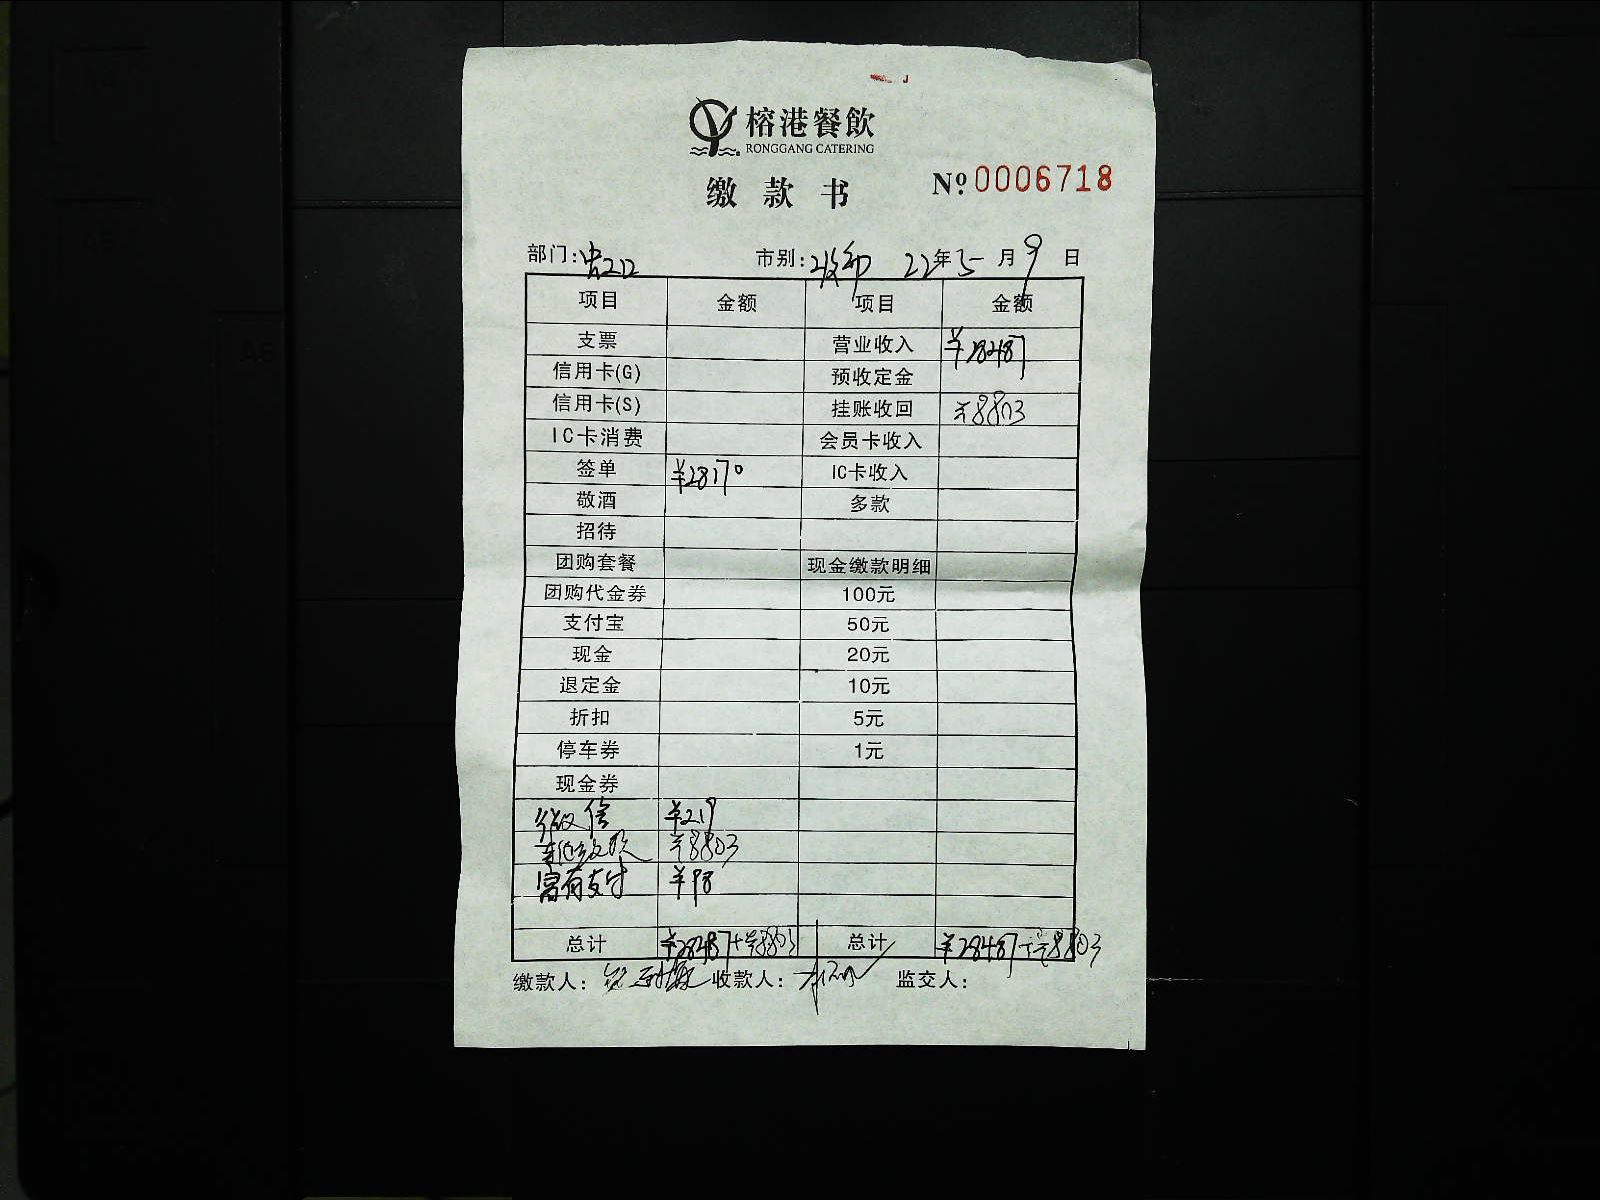 榕港餐飲
RONGGANG CATERING
缴款书 Nº 0006718
部门: 市别: 22年5月9日
项目 金额 项目 金额
支票 营业收入 ¥28487
信用卡(G) 预收定金
信用卡(S) 挂账收回 ¥8803
IC卡消费 会员卡收入
签单 ¥28170 IC卡收入
敬酒 多款
招待
团购套餐 现金缴款明细
团购代金券 100元
支付宝 50元
现金 20元
退定金 10元
折扣 5元
停车券 1元
现金券
微信 ¥219
¥8803
富有支付 ¥98
总计 ¥28487+¥8803 总计 ¥28487+¥8803
缴款人: 收款人: 监交人: